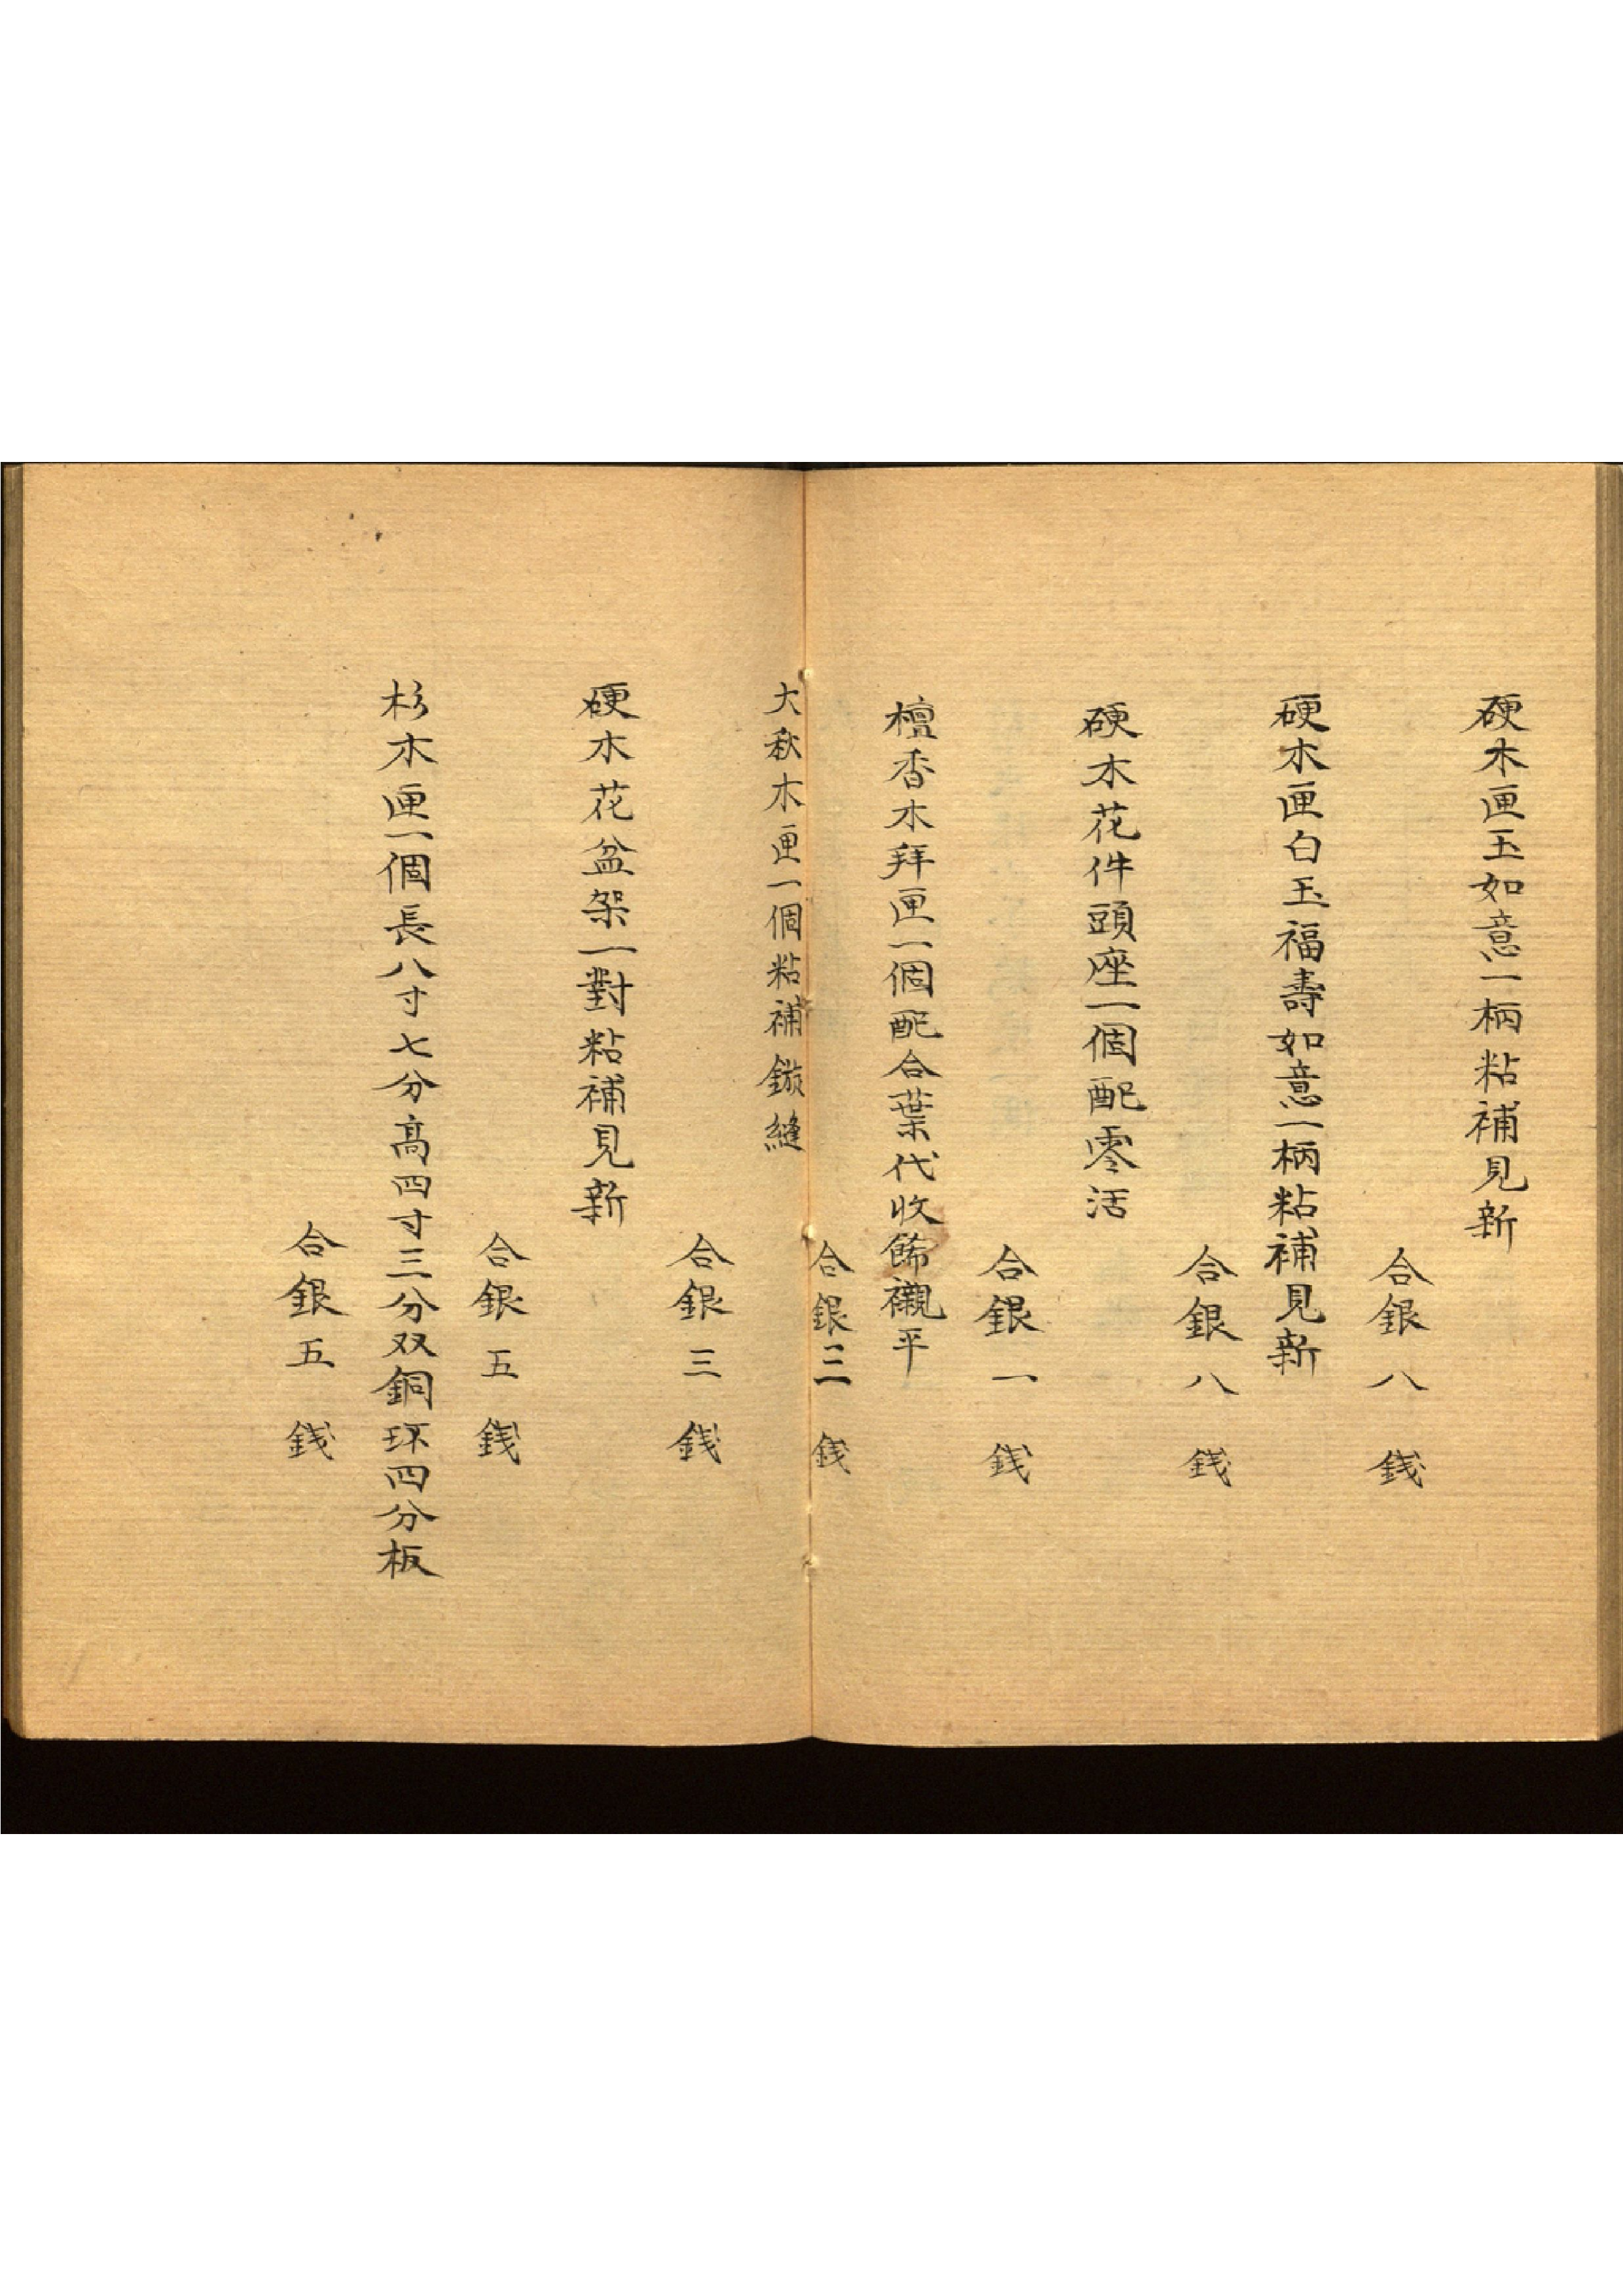 硬木匣玉如意一柄粘補見新
合銀八錢
硬木匣白玉福壽如意一柄粘補見新
合銀八錢
硬木花件頭座一個配零活
合銀一錢
檀香木拜匣一個配合葉代收餙襯平
合銀三錢
大秋木匣一個粘補鏇縫
合銀三錢
硬木花盆架一對粘補見新
合銀五錢
杉木匣一個長八寸七分高四寸三分双銅环四分板
合銀五錢